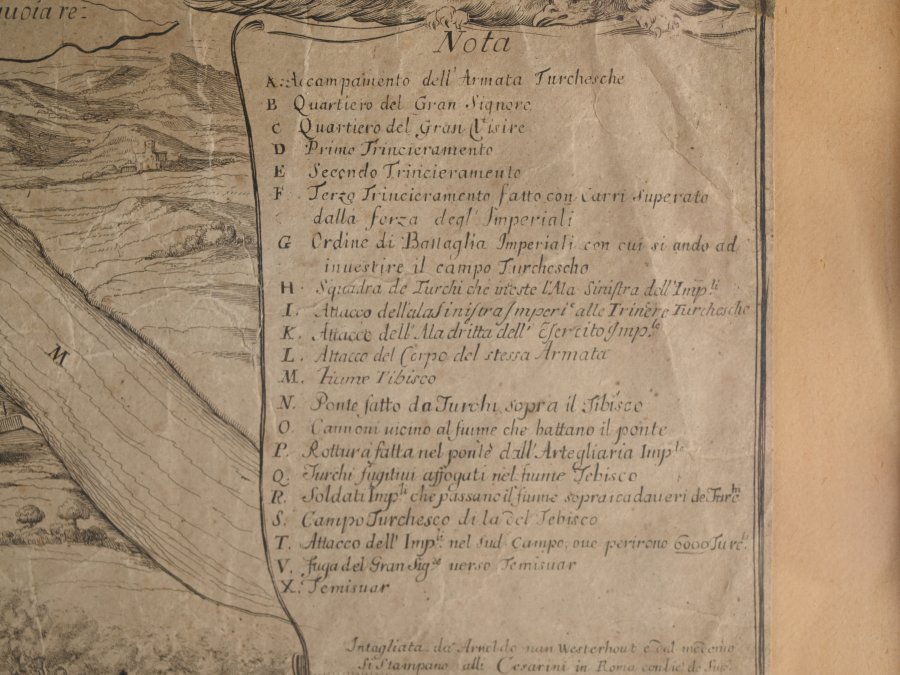 Nota
A. Accampamento dell'Armata Turchesche
B Quartiero del Gran Signore
C Quartiero del Gran Visire
D Primo Trincieramento
E Secondo Trincieramento
F Terzo Trincieramento fatto con Carri Superato
dalla forza degl'Imperiali
G Ordine di Battaglia Imperiali con cui si ando ad
inuestire il campo Turchescho
H Squadra de Turchi che ineste l'Ala Sinistra dell'Imp.li
I. Attacco dell'ala Sinistra Imperi.e alle Trinere Turchesche
K. Attacco dell'Ala dritta dell' Esercito Imp.le
L. Attacco del Corpo del stessa Armata
M. Fiume Tibisco
N. Ponte fatto da Turchi sopra il Tibisco
O. Cannoni uicino al fiume che battano il ponte
P. Rottura fatta nel ponte dall'Artegliaria Imp.le
Q. Turchi fugitiui affogati nel fiume Tebisco
R. Soldati Imp.li che passano il fiume sopra i cadaueri de Turc.hi
S. Campo Turchesco di la del Tebisco
T. Attacco dell' Imp.li nel Sud. Campo, oue perirono 6000 Turc.hi
V. fuga del Gran Sig.re uerso Temisuar
X. Temisuar
M
Intagliata da Arnoldo uan Westerhout e dal medemo
Si Stampano alli Cesarini in Roma con lic. de Sup.